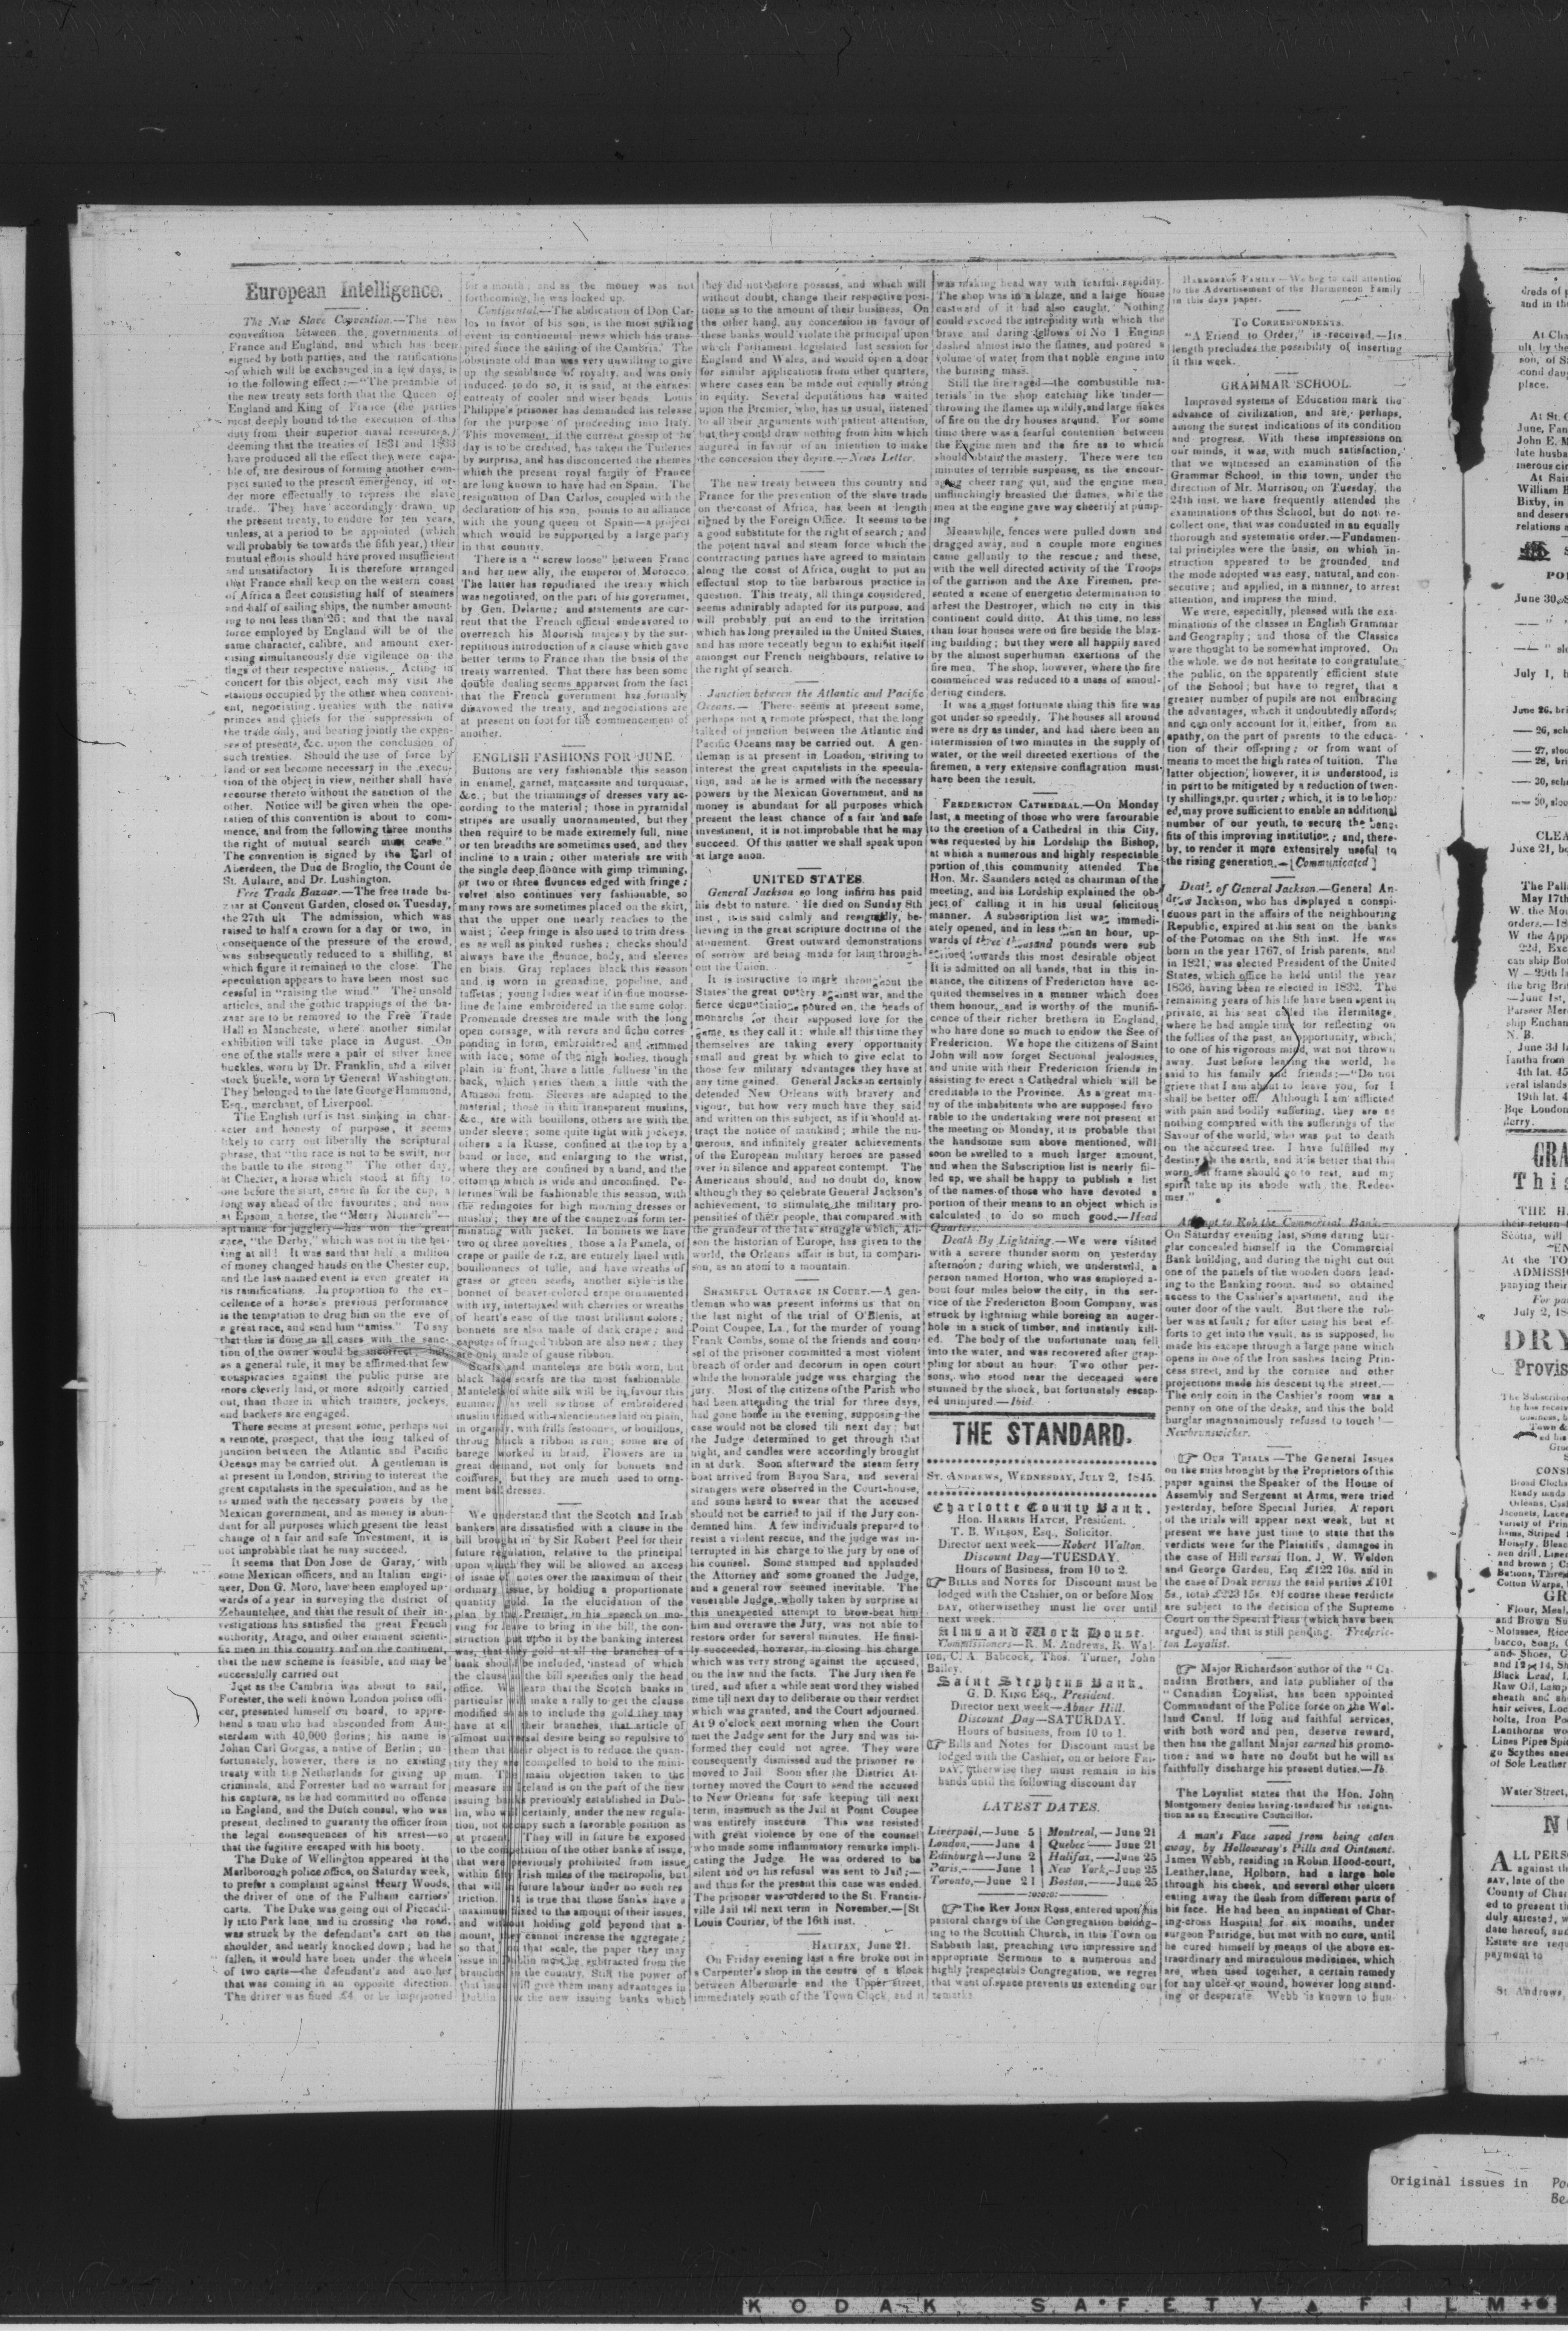 European Intelligence.
The New Slave Convention.—The new
convention between the governments of
France and England, and which has been
signed by both parties, and the ratifications
of which will be exchanged in a few days, is
to the following effect:—"The preamble of
the new treaty sets forth that the Queen of
England and King of France (the parties
most deeply bound to the execution of this
duty from their superior naval resources,)
deeming that the treaties of 1831 and 1833
have produced all the effect they were capa-
ble of, are desirous of forming another com-
pact suited to the present emergency, in or-
der more effectually to repress the slave
trade. They have accordingly drawn up
the present treaty, to endure for ten years,
unless, at a period to be appointed (which
will probably be towards the fifth year,) their
mutual efforts should have proved insufficient
and unsatisfactory. It is therefore arranged
that France shall keep on the western coast
of Africa a fleet consisting half of steamers
and half of sailing ships, the number amount-
ing to not less than 26; and that the naval
force employed by England will be of the
same character, calibre, and amount exer-
cising simultaneously due vigilence on the
flags of their respective nations. Acting in
concert for this object, each may visit the
stations occupied by the other when conveni-
ent, negociating treaties with the native
princes and chiefs for the suppression of
the trade only, and bearing jointly the expen-
ses of presents, &c. upon the conclusion of
such treaties. Should the use of force by
land or sea become necessary in the execu-
tion of the object in view, neither shall have
recourse thereto without the sanction of the
other. Notice will be given when the ope-
ration of this convention is about to com-
mence, and from the following three months
the right of mutual search must cease."
The convention is signed by the Earl of
Aberdeen, the Duc de Broglio, the Count de
St. Aulaire, and Dr. Lushington.
Free Trade Bazaar.—The free trade ba-
zaar at Convent Garden, closed on Tuesday,
the 27th ult The admission, which was
raised to half a crown for a day or two, in
consequence of the pressure of the crowd,
was subsequently reduced to a shilling, at
which figure it remained to the close. The
speculation appears to have been most suc
cessful in "raising the wind." The unsold
articles, and the gothic trappings of the ba-
zaar are to be removed to the Free Trade
Hall in Mancheste, where another similar
exhibition will take place in August. On
one of the stalls were a pair of silver knee
buckles, worn by Dr. Franklin, and a silver
stock buckle, worn by General Washington.
They belonged to the late George Hammond,
Esq., merchant, of Liverpool.
The English turf is fast sinking in char-
acter and honesty of purpose, it seems
likely to carry out liberally the scriptural
phrase, that "the race is not to be swift, nor
the battle to the strong." The other day,
at Chester, a horse which stood at fifty to
one before the start, came in for the cup, a
long way ahead of the favourites; and now
at Epsom, a horse, the "Merry Monarch"—
apt name for jugglery—has won the great
race, "the Derby," which was not in the bet-
ting at all! It was said that half a million
of money changed hands on the Chester cup,
and the last named event is even greater in
its ramifications. In proportion to the ex-
cellence of a horse's previous performance
is the temptation to drug him on the eve of
a great race, and send him "amiss." To say
that this is done in all cases with the sanc-
tion of the owner would be uncorrect; but,
as a general rule, it may be affirmed that few
conspiracies against the public purse are
more cleverly laid, or more adroitly carried
out, than those in which trainers, jockeys,
and backers are engaged.
There seems at present some, perhaps not
a remote, prospect, that the long talked of
junction between the Atlantic and Pacific
Oceans may be carried out. A gentleman is
at present in London, striving to interest the
great capitalists in the speculation, and as he
is armed with the necessary powers by the
Mexican government, and as money is abun-
dant for all purposes which present the least
change of a fair and safe investment, it is
not improbable that he may succeed.
It seems that Don Jose de Garay, with
some Mexican officers, and an Italian engi-
neer, Don G. Moro, have been employed up-
wards of a year in surveying the district of
Tehauntehec, and that the result of their in-
vestigations has satisfied the great French
authority, Arago, and other eminent scienti-
fic men in this country and on the continent,
that the new scheme is feasible, and may be
successfully carried out
Just as the Cambria was about to sail,
Forester, the well known London police offi-
cer, presented himself on board, to appre-
hend a man who had absconded from Am-
sterdam with 40,000 florins; his name is
Johan Carl Gorgas, a native of Berlin; un-
fortunately, however, there is no existing
treaty with the Netherlands for giving up
criminals, and Forrester had no warrant for
his capture, as he had committed no offence
in England, and the Dutch consul, who was
present, declined to guaranty the officer from
the legal consequences of his arrest—so
that the fugitive escaped with his booty.
The Duke of Wellington appeared at the
Marlborough police office, on Saturday week,
to prefer a complaint against Henry Woods,
the driver of one of the Fulham carriers'
carts. The Duke was going out of Piccadil-
ly into Park lane, and in crossing the road,
was struck by the defendant's cart on the
shoulder, and nearly knocked down; had he
fallen, it would have been under the wheels
of two carts—the defendant's and another
that was coming in an opposite direction
The driver was fined £4, or be imprisoned
for a month, and as the money was not
forthcoming, he was locked up.
Contigental.—The abdication of Don Car-
los in favor of his son, is the most striking
event in continental news which has trans-
pired since the sailing of the Cambria. The
obstinate old man was very unwilling to give
up the seinblance of royalty, and was only
induced to do so, it is said, at the earnest
entreaty of cooler and wiser heads. Louis
Philippe's prisoner has demanded his release
for the purpose of proceeding into Italy.
This movement, if the current gossip of the
day is to be credited, has taken the Tuileries
by surprise, and has disconcerted the themes
which the present royal family of France
are long known to have had on Spain. The
resignation of Dan Carlos, coupled with the
declaration of his son, points to an alliance
with the young queen of Spain—a project
which would be supported by a large party
in that country.
There is a "screw loose" between Franc
and her new ally, the emperor of Morocco.
The latter has repudiated the treaty which
was negotiated, on the part of his governmet,
by Gen. Delarue; and statements are cur-
rent that the French official endeavored to
overreach his Moorish majesty by the sur-
reptitious introduction of a clause which gave
better terms to France than the basis of the
treaty warrented. That there has been some
double dealing seems apparent from the fact
that the French government has formally
disavowed the treaty, and negociations are
at present on foot for the commencement of
another.
ENGLISH FASHIONS FOR JUNE.
Buttons are very fashionable this season
in enamel, garnet, marcassite and turquoise,
&c.; but the trimmings of dresses vary ac-
cording to the material; those in pyramidal
stripes are usually unornamented, but they
then require to be made extremely full, nine
or ten breadths are sometimes used, and they
incline to a train; other materials are with
the single deep flounce with gimp trimming,
or two or three flounces edged with fringe;
velvet also continues very fashionable, so
many rows are sometimes placed on the skirt,
that the upper one nearly reaches to the
waist; deep fringe is also used to trim dress
es as well as pinked rushes; checks should
always have the flounce, body, and sleeves
en biais. Gray replaces black this season
and is worn in grenadine, popeline, and
taffetas; young ladies wear if in fine mousse-
line de laine embroidered in the same color.
Promenade dresses are made with the long
open corsage, with revers and fichu corres-
ponding in form, embroidered and trimmed
with lace; some of the high bodies, though
plain in front, have a little fullness in the
back, which varies them a little with the
Amazon from. Sleeves are adapted to the
material; those in thin transparent muslins,
&c., are with bouillons, others are with the
under sleeve; some quite tight with jockeys,
others a la Russe, confined at the top by a
band or lace, and enlarging to the wrist,
where they are confined by a band, and the
ottoman which is wide and unconfined. Pe-
lerines will be fashionable this season, with
the redingotes for high morning dresses or
muslin; they are of the canezous form ter-
minating with jacket. In bonnets we have
two or three novelties, those a la Pamela, of
crape or paille de riz, are entirely lined with
bouillonnecs of tulle, and have wreaths of
grass or green seeds, another style is the
bonnet of beaver-colored crape ornamented
with ivy, intermixed with cherries or wreaths
of heart's ease of the most brilliant colors;
bonnets are also made of dark crape; and
capotes of fringed ribbon are also new; they
are only made of gause ribbon.
Scarfs and mantelets are both worn, but
black lace scarfs are the most fashionable.
Mantelets of white silk will be in favour this
summer as well as those of embroidered
muslin trimed with valenciennes laid on plain,
in organdy, with frills festooned, or bouillons,
throug which a ribbon is run; some are of
barege worked in braid. Flowers are in
great demand, not only for bonnets and
coiffures, but they are much used to orna-
ment ball dresses.
We understand that the Scotch and Irish
bankers are dissatisfied with a clause in the
bill brought in by Sir Robert Peel for their
future regulation, relative to the principal
upon which they will be allowed an excess
of issue of notes over the maximum of their
ordinary issue, by holding a proportionate
quantity gold. In the elucidation of the
plan by the Premier, in his speech on mo-
ving for leave to bring in the bill, the con-
struction put upon it by the banking interest
was, that they gold at all the branches of a
bank should be included, instead of which
the clause in the bill specifies only the head
office. We earn that the Scotch banks in
particular will make a rally to get the clause
modified so as to include the gold they may
have at all their branches, that article of
almost universal desire being so repulsive to
them that their object is to reduce the quan-
tity they are compelled to hold to the mini-
mum. The main objection taken to the
measure in Ireland is on the part of the new
issuing banks previously established in Dub-
lin, who will certainly, under the new regula-
tion, not occupy such a favorable position as
at present. They will in future be exposed
to the competition of the other banks of issue,
that were previously prohibited from issue
within fifty Irish miles of the metropolis, but
that will in future labour under no such res
triction. It is true that those banks have a
maximum fixed to the amount of their issues,
and without holding gold beyond that a-
mount, they cannot increase the aggregate;
so that, on that scale, the paper they may
issue in Dublin must be subtracted from the
branches in the country. Still the power of
Dublin will give them many advantages in
the new issuing banks which
they did not before possess, and which will
without doubt, change their respective posi-
tions as to the amount of their business. On
the other hand, any concession in favour of
these banks would violate the principal upon
which Parliament legislated last session for
England and Wales, and would open a door
for similar applications from other quarters,
where cases can be made out equally strong
in equity. Several deputations has waited
upon the Premier, who, has us usual, listened
to all their arguments with patient attention,
but they could draw nothing from him which
augured in favour of an intention to make
the concession they desire.—News Letter.
The new treaty between this country and
France for the prevention of the slave trade
on the coast of Africa, has been at length
signed by the Foreign Office. It seems to be
a good substitute for the right of search; and
the potent naval and steam force which the
contrracting parties have agreed to maintain
along the coast of Africa, ought to put an
effectual stop to the barbarous practice in
question. This treaty, all things considered,
seems admirably adapted for its purpose, and
will probably put an end to the irritation
which has long prevailed in the United States,
and has more recently began to exhibit itself
amongst our French neighbours, relative to
the right of search.
Junction between the Atlantic and Pacific
Oceans.— There seems at present some,
perhaps not a remote prospect, that the long
talked of junction between the Atlantic and
Pacific Oceans may be carried out. A gen-
tleman is at present in London, striving to
interest the great capitalists in the specula-
tion, and as he is armed with the necessary
powers by the Mexican Government, and as
money is abundant for all purposes which
present the least chance of a fair and safe
investment, it is not improbable that he may
succeed. Of this matter we shall speak upon
at large anon.
UNITED STATES.
General Jackson so long infirm has paid
his debt to nature. He died on Sunday 8th
inst, it is said calmly and resignedly, be-
lieving in the great scripture doctrine of the
atonement. Great outward demonstrations
of sorrow are being made for him through-
out the Union.
It is instructive to mark throughout the
States the great outery against war, and the
fierce denunciations poured on, the heads of
monarchs for their supposed love for the
game, as they call it: while all this time they
themselves are taking every opportunity
small and great by which to give eclat to
those few military advantages they have at
any time gained. General Jackson certainly
detended New Orleans with bravery and
vigour, but how very much have they said
and written on this subject, as if it should at-
tract the notice of mankind; while the nu-
merous, and infinitely greater achievements
of the European military heroes are passed
over in silence and apparent contempt. The
Americans should, and no doubt do, know
although they so celebrate General Jackson's
achievement, to stimulate the military pro-
pensities of their people, that compared with
the grandeur of the late struggle which, Ali-
son the historian of Europe, has given to the
world, the Orleans affair is but, in compari-
son, as an atom to a mountain.
SHAMEFUL OUTRAGE IN COURT.—A gen-
tleman who was present informs us that on
the last night of the trial of O'Blenis, at
Point Coupee, La., for the murder of young
Frank Combs, some of the friends and coun-
sel of the prisoner committed a most violent
breach of order and decorum in open court
while the honorable judge was charging the
jury. Most of the citizens of the Parish who
had been attending the trial for three days,
had gone home in the evening, supposing the
case would not be closed till next day; but
the Judge determined to get through that
night, and candles were accordingly brought
in at dark. Soon afterward the steam ferry
boat arrived from Bayou Sara, and several
strangers were observed in the Court-house,
and some heard to swear that the accused
should not be carried to jail if the Jury con-
demned him. A few individuals prepared to
resist a violent rescue, and the judge was in-
terrupted in his charge to the jury by one of
his counsel. Some stamped and applauded
the Attorney and some groaned the Judge,
and a general row seemed inevitable. The
venerable Judge, wholly taken by surprise at
this unexpected attempt to brow-beat him
him and overawe the Jury, was not able to
restore order for several minutes. He final-
ly succeeded, however, in closing his charge
which was very strong against the accused,
on the law and the facts. The Jury then re
tired, and after a while sent word they wished
time till next day to deliberate on their verdict
which was granted, and the Court adjourned.
At 9 o'clock next morning when the Court
met the Judge sent for the Jury and was in-
formed they could not agree. They were
consequently dismissed and the prisoner re
moved to Jail. Soon after the District At-
torney moved the Court to send the accused
to New Orleans for safe keeping till next
term, inasmuch as the Jail at Point Coupee
was entirely insecure. This was resisted
with great violence by one of the counsel
who made some inflammatory remarks impli-
cating the Judge. He was ordered to be
silent and on his refusal was sent to Jail;—
and thus for the present this case was ended.
The prisoner was ordered to the St. Francis-
ville Jail till next term in November.—[St
Louis Courier, of the 16th inst.
HALIFAX, June 21.
On Friday evening last a fire broke out in
a Carpenter's shop in the centre of a block
between Albermarle and the Upper street,
immediately south of the Town Clock, and it
was making head way with fearful rapidity.
The shop was in a blaze, and a large house
eastward of it had also caught. Nothing
could exceed the intrepidity with which the
brave and daring fellows of No 1 Engine
dashed almost into the flames, and poured a
volume of water from that noble engine into
the burning mass.
Still the fire raged—the combustible ma-
terials in the shop catching like tinder—
throwing the flames up wildly, and large flakes
of fire on the dry houses around. For some
time there was a fearful contention between
the Engine men and the fire as to which
should obtain the mastery. There were ten
minutes of terrible suspense, as the encour-
aging cheer rang out, and the engine men
unflinchingly breasted the flames, while the
men at the engine gave way cheerily at pump-
ing
Meanwhile, fences were pulled down and
dragged away, and a couple more engines
came gallantly to the rescue; and these,
with the well directed activity of the Troops
of the garrison and the Axe Firemen, pre-
sented a scene of energetic determination to
arrest the Destroyer, which no city in this
continent could ditto. At this time, no less
than four houses were on fire beside the blaz-
ing building; but they were all happily saved
by the almost superhuman exertions of the
fire men. The shop, however, where the fire
commenced was reduced to a mass of smoul-
dering cinders.
It was a most fortunate thing this fire was
got under so speedily. The houses all around
were as dry as tinder, and had there been an
intermission of two minutes in the supply of
water, or the well directed exertions of the
firemen, a very extensive conflagration must
have been the result.
FREDERICTON CATHEDRAL.—On Monday
last, a meeting of those who were favourable
to the erection of a Cathedral in this City,
was requested by his Lordship the Bishop,
at which a numerous and highly respectable
portion of this community attended The
Hon. Mr. Saunders acted as chairman of the
meeting, and his Lordship explained the ob-
ject of calling it in his usual felicitous
manner. A subscription list was immedi-
ately opened, and in less then an hour, up-
wards of three thousand pounds were sub
scribed towards this most desirable object
It is admitted on all hands, that in this in-
stance, the citizens of Fredericton have ac-
quited themselves in a manner which does
them honour, and is worthy of the munifi-
cence of their richer brethern in England,
who have done so much to endow the See of
Fredericton. We hope the citizens of Saint
John will now forget Sectional jealousies,
and unite with their Fredericton friends in
assisting to erect a Cathedral which will be
creditable to the Province. As a great ma-
ny of the inhabitants who are supposed favo
rable to the undertaking were not present at
the meeting on Monday, it is probable that
the handsome sum above mentioned, will
soon be swelled to a much larger amount,
and when the Subscription list is nearly fil-
led up, we shall be happy to publish a list
of the names of those who have devoted a
portion of their means to an object which is
calculated to do so much good.—Head
Quarters.
Death By Lightning.—We were visited
with a severe thunder storm on yesterday
afternoon; during which, we understand, a
person named Horton, who was employed a-
bout four miles below the city, in the ser-
vice of the Fredericton Boom Company, was
struck by lightning while boreing an auger-
hole in a stick of timber, and instantly kill-
ed. The body of the unfortunate man fell
into the water, and was recovered after grap-
pling for about an hour. Two other per-
sons, who stood near the deceased were
stunned by the shock, but fortunately escap-
ed uninjured.—Ibid.
THE STANDARD.
ST. ANDREWS, WEDNESDAY, JULY 2, 1845.
Charlotte County Bank.
Hon. HARRIS HATCH, President.
T. B. WILSON, Esq., Solicitor.
Director next week——Robert Walton.
Discount Day—TUESDAY.
Hours of Business, from 10 to 2.
BILLS and NOTES for Discount must be
lodged with the Cashier, on or before MON
DAY, otherwisethey must lie over until
next week.
Alms and Work House.
Commissioners—R. M. Andrews, R. Wal-
ton, C. A. Babcock, Thos. Turner, John
Bailey.
Saint Stephens Bank.
G. D. KING Esq., President.
Director next week—Abner Hill.
Discount Day—SATURDAY.
Hours of business, from 10 to 1.
Bills and Notes for Discount must be
lodged with the Cashier, on or before FRI-
DAY, otherwise they must remain in his
hands until the following discount day
LATEST DATES.
Liverpool,—June 5 Montreal,—June 21
London,——June 4 Quebec——June 21
Edinburgh—June 2 Halifax,—June 25
Paris,——June 1 New York,-June 25
Toronto,—June 21 Boston,——June 25
The Rev John Ross, entered upon his
pastoral charge of the Congregation belong-
ing to the Scottish Church, in this Town on
Sabbath last, preaching two impressive and
appropriate Sermons to a numerous and
highly respectable Congregation, we regret
that want of space prevents us extending our
remarks
HARMENEON FAMILY—We beg to call attention
to the Advertisement of the Harmeneon Family
in this days paper.
TO CORRESPONDENTS.
"A Friend to Order," is received.—Its
length precludes the possibility of inserting
it this week.
GRAMMAR SCHOOL.
Improved systems of Education mark the
advance of civilization, and are, perhaps,
among the surest indications of its condition
and progress. With these impressions on
our minds, it was, with much satisfaction,
that we witnessed an examination of the
Grammar School, in this town, under the
direction of Mr. Morrison, on Tuesday, the
24th inst. we have frequently attended the
examinations of this School, but do not re-
collect one, that was conducted in an equally
thorough and systematic order.—Fundamen-
tal principles were the basis, on which in-
struction appeared to be grounded, and
the mode adopted was easy, natural, and con-
secutive; and applied, in a manner, to arrest
attention, and impress the mind.
We were, especially, pleased with the exa-
minations of the classes in English Grammar
and Geography; and those of the Classics
were thought to be somewhat improved. On
the whole, we do not hesitate to congratulate
the public, on the apparently efficient state
of the School; but have to regret, that a
greater number of pupils are not embracing
the advantages, which it undoubtedly affords;
and can only account for it, either, from an
apathy, on the part of parents to the educa-
tion of their offspring; or from want of
means to meet the high rates of tuition. The
latter objection, however, it is understood, is
in part to be mitigated by a reduction of twen-
ty shillings, pr. quarter; which, it is to be hop-
ed, may prove sufficient to enable an additional
number of our youth, to secure the bene-
fits of this improving institution; and, there-
by, to render it more extensively useful to
the rising generation.—[Communicated]
Death of General Jackson.—General An-
drew Jackson, who has displayed a conspi-
cuous part in the affairs of the neighbouring
Republic, expired at his seat on the banks
of the Potomac on the 8th inst. He was
born in the year 1767, of Irish parents, and
in 1821, was elected President of the United
States, which office he held until the year
1836, having been re elected in 1832. The
remaining years of his life have been spent in
private, at his seat called the Hermitage,
where he had ample time for reflecting on
the follies of the past, an opportunity, which,
to one of his vigorous mind, wat not thrown
away. Just before leaving the world, he
said to his family and friends:—"Do not
grieve that I am about to leave you, for I
shall be better off! Although I am afflicted
with pain and bodily suffering, they are as
nothing compared with the sufferings of the
Savour of the world, who was put to death
on the accursed tree. I have fulfilled my
destiny on the earth, and it is better that this
worn out frame should go to rest, and my
spirit take up its abode with the Redee-
mer."
Attempt to Rob the Commercial Bank.—
On Saturday evening last, some daring bur-
glar concealed himself in the Commercial
Bank building, and during the night cut out
one of the panels of the wooden doors lead-
ing to the Banking room, and so obtained
access to the Cashier's apartment, and the
outer door of the vault. But there the rob-
ber was at fault; for after using his best ef-
forts to get into the vault, as is supposed, he
made his escape through a large pane which
opens in one of the Iron sashes facing Prin-
cess street, and by the cornice and other
projections made his descent to the street.—
The only coin in the Cashier's room was a
penny on one of the desks, and this the bold
burglar magnanimously refused to touch!—
Newbrunswicker.
OUR TRIALS—The General Issues
on the suits brought by the Proprietors of this
paper against the Speaker of the House of
Assembly and Sergeant at Arms, were tried
yesterday, before Special Juries. A report
of the trials will appear next week, but at
present we have just time to state that the
verdicts were for the Plaintiffs, damages in
the case of Hill versus Hon. J. W. Weldon
and George Garden, Esq £122 10s. and in
the case of Doak versus the said parties £101
5s., total £223 15s. Of course these verdicts
are subject to the decision of the Supreme
Court on the Special Pleas (which have been
argued) and that is still pending. Frederic-
ton Loyalist.
Major Richardson author of the "Ca-
nadian Brothers, and late publisher of the
"Canadian Loyalist, has been appointed
Commandant of the Police force on the Wel-
land Canal. If long and faithful services,
with both word and pen, deserve reward,
then has the gallant Major earned his promo-
tion: and we have no doubt but he will as
faithfully discharge his present duties.—Ib.
The Loyalist states that the Hon. John
Montgomery denies having tendered his resigna-
tion as an Executive Councillor.
A man's Face saved from being eaten
away, by Holloway's Pills and Ointment.
James Webb, residing in Robin Hood-court,
Leather, lane, Holborn, had a large hole
through his cheek, and several other ulcers
eating away the flesh from different parts of
his face. He had been an inpatient of Char-
ing-cross Hospital for six months, under
surgeon Patridge, but met with no cure, until
he cured himself by means of the above ex-
traordinary and miraculous medicines, which
are, when used together, a certain remedy
for any ulcer or wound, however long stand-
ing or desperate. Webb is known to hun-
dreds of
and in the
At Cha
ult. by the
son, of S
cond dau
place.
At St. C
June, Fan
John E. M
late husba
merous cir
At Sain
William B
Bixby, in
and deserv
relations a
June 30,
July 1, b
June 26, bri
— 26, sch
— 27, sloo
— 28, bri
— 30, sch
— 30, sloo
CLEA
June 21, b
The Palla
May 17th
W. the Mo
orders.—18
W the App
22d, Exc
can ship Bot
W.—29th I
the brig Brit
—June 1st,
Parsser Mer
ship Enchan
N. B.
June 3d l
Iantha from
4th lat. 45
veral islands
19th lat. 4
Bqe London
derry.
GRA
This
THE H
their return
Scotia, will
"EN
At the TO
ADMISSI
panying their
For pa
July 2, 18
DRY
Provis
The Subscriber
he has receiv
business, b
Town &
ed his
CONSI
Broad Cloths
Ready made
Orleans, Cash
Jaconets, Lace
variety of Prin
hams, Striped
Hosiery, Bleac
nen drill, Linen
and brown; C
Buttons, Thread
Cotton Warps,
GR
Flour, Meal
and Brown Su
Molasses, Rice
bacco, Soap, C
and Shoes, G
and 12 x 14, Sh
Black Lead, L
Raw Oil, Lamp
sheath and sh
hair seives, Loc
bolts, Iron Po
Lanthorns wo
Lines Pipes Spi
go Scythes snea
of Sole Leather
Water Street,
N
ALL PERS
against th
SAY, late of the
County of Char
ed to present th
duly attested, w
date hereof, and
Estate are requ
payment to
St. Andrews,
Original issues in
KODAK SAFETY FILM